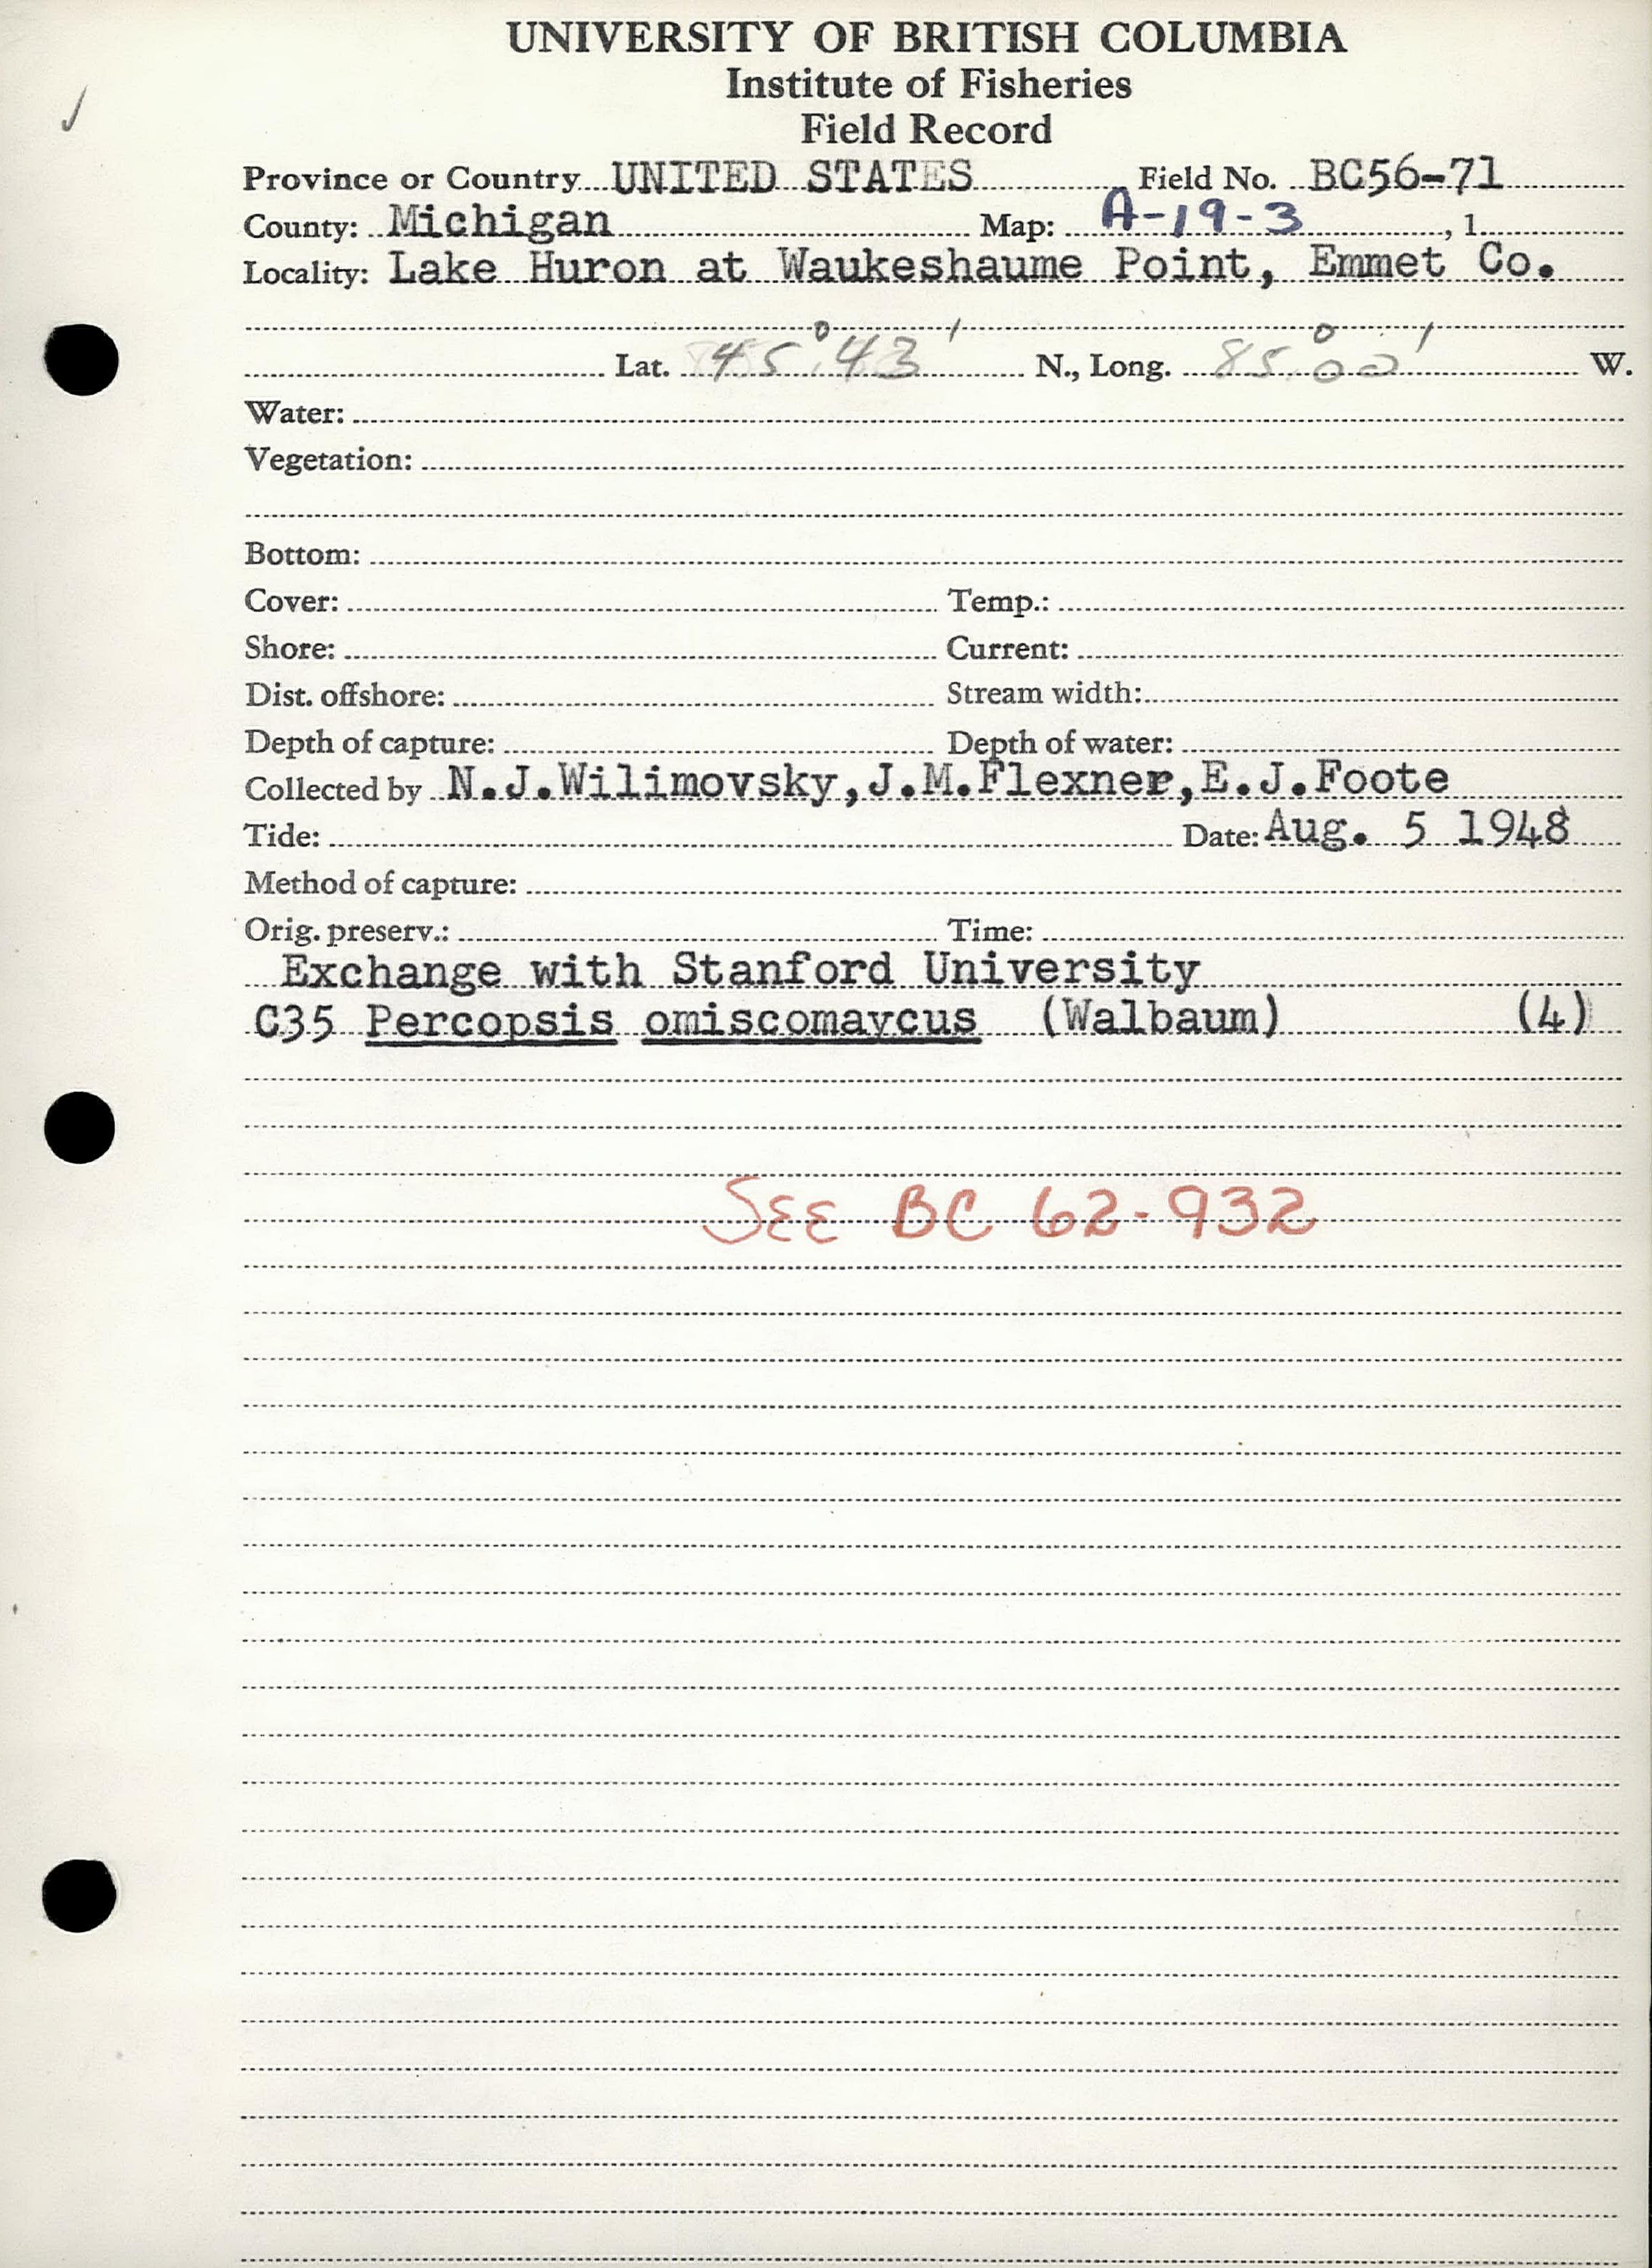 UNIVERSITY OF BRITISH COLUMBIA
Institute of Fisheries
Field Record
Province or Country UNITED STATES Field No. BC56-71
County: Michigan Map: A-19-3, 1
Locality: Lake Huron at Waukeshaume Point, Emmet Co.
Lat. 45° 43' N., Long. 85° 00' W.
Water:
Vegetation:
Bottom:
Cover: Temp.:
Shore: Current:
Dist. offshore: Stream width:
Depth of capture: Depth of water:
Collected by N.J.Wilimovsky,J.M.Flexner,E.J.Foote
Tide: Date: Aug. 5 1948
Method of capture:
Orig. preserv.: Time:
Exchange with Stanford University
C35 Percopsis omiscomaycus (Walbaum) (4)
SEE BC 62-932